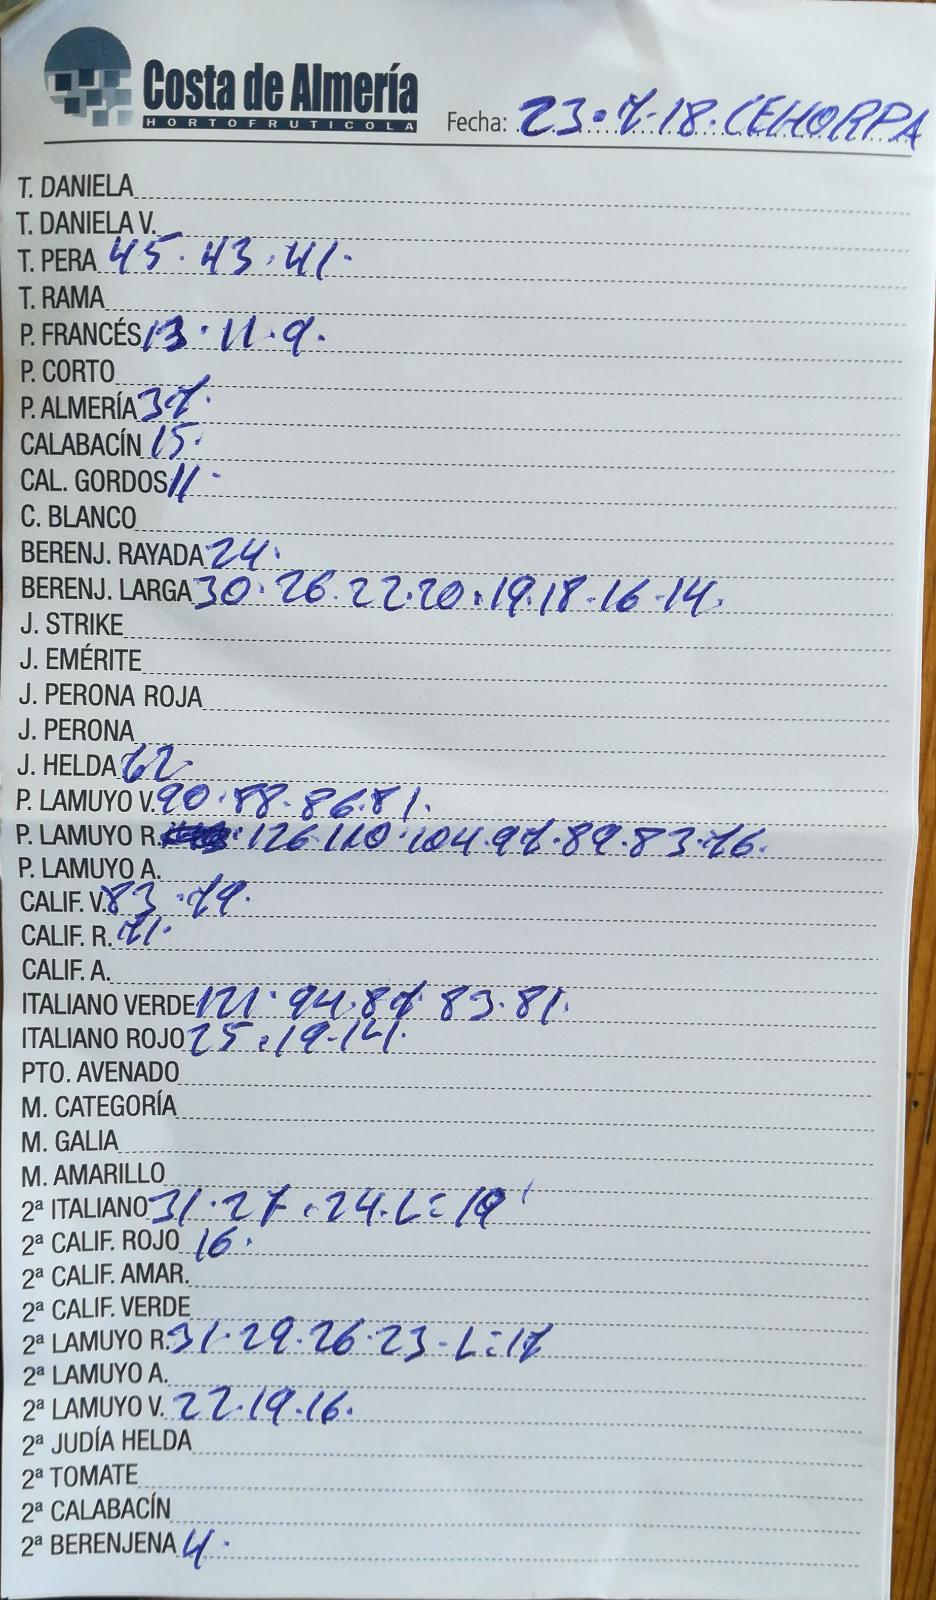 Costa de Almería
HORTOFRUTICOLA
Fecha: 23.7.18. CEHORPA
T. DANIELA
T. DANIELA V.
T. PERA 45. 43. 41.
T. RAMA
P. FRANCÉS 13. 11. 9.
P. CORTO
P. ALMERÍA 37.
CALABACÍN 15.
CAL. GORDOS 11.
C. BLANCO
BERENJ. RAYADA 24.
BERENJ. LARGA 30. 26. 22. 20. 19. 18. 16. 14.
J. STRIKE
J. EMÉRITE
J. PERONA ROJA
J. PERONA
J. HELDA
P. LAMUYO V. 90. 88. 86. 81.
P. LAMUYO R. 126. 110. 104. 97. 89. 83. 76.
P. LAMUYO A.
CALIF. V. 83. 79.
CALIF. R. 71.
CALIF. A.
ITALIANO VERDE 121. 94. 87. 83. 81.
ITALIANO ROJO 25. 19. 14.
PTO. AVENADO
M. CATEGORÍA
M. GALIA
M. AMARILLO
2ª ITALIANO 31. 27. 24. L=19
2ª CALIF. ROJO 16.
2ª CALIF. AMAR.
2ª CALIF. VERDE
2ª LAMUYO R. 31. 29. 26. 23. L=17
2ª LAMUYO A.
2ª LAMUYO V. 22. 19. 16.
2ª JUDÍA HELDA
2ª TOMATE
2ª CALABACÍN
2ª BERENJENA 4.